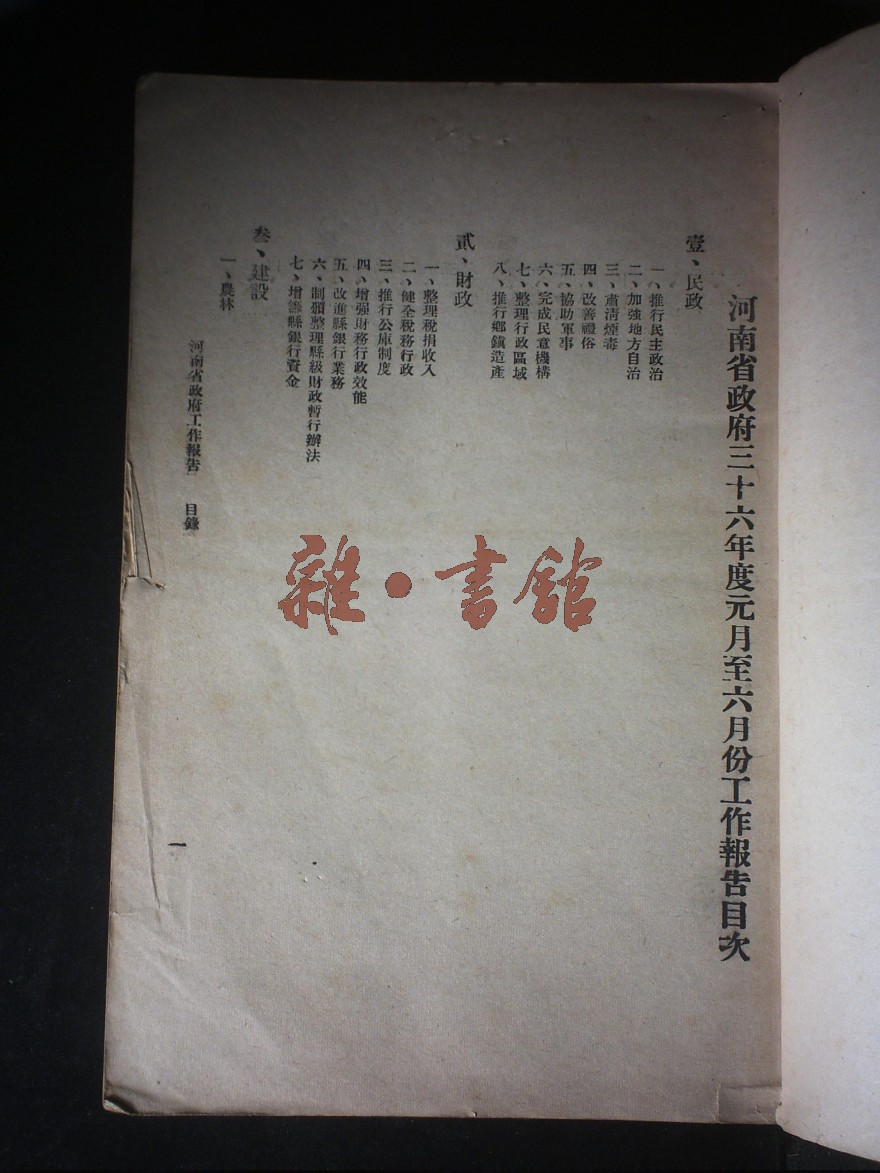 河南省政府三十六年度元月至六月份工作報告目次
壹、民政
一、推行民主政治
二、加強地方自治
三、肅清煙毒
四、改善禮俗
五、協助軍事
六、完成民意機構
七、整理行政區域
八、推行鄉鎮造產
貳、財政
一、整理稅捐收入
二、健全稅務行政
三、推行公庫制度
四、增强財務行政效能
五、改進縣銀行業務
六、制頒整理縣級財政暫行辦法
七、增籌縣銀行資金
叁、建設
一、農林
河南省政府工作報告 目錄
一
雜·書館